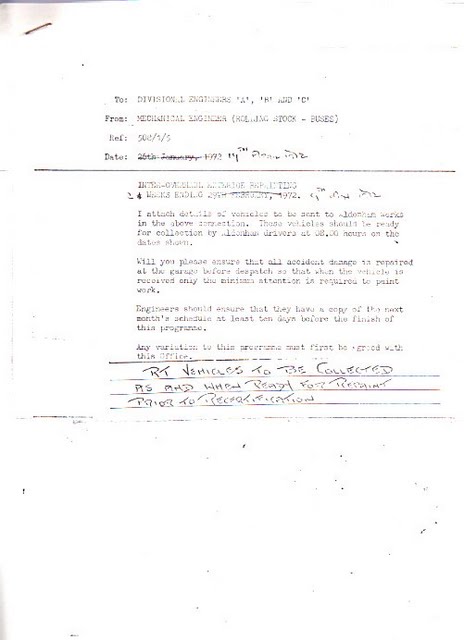 To: DIVISIONAL ENGINEERS 'A', 'B' AND 'C'
From: MECHANICAL ENGINEER (ROLLING STOCK - BUSES)
Ref:
Date: 26th January, 1972 14TH
INTER-OVERHAUL EXTERIOR REPAINTING
4 WEEKS ENDING 29TH FEBRUARY, 1972.
I attach details of vehicles to be sent to Aldenham works
in the above connection. These vehicles should be ready
for collection by Aldenham drivers at 08.00 hours on the
dates shown.
Will you please ensure that all accident damage is repaired
at the garage before despatch so that when the vehicle is
received only the minimum attention is required to paint
work.
Engineers should ensure that they have a copy of the next
month's schedule at least ten days before the finish of
this programme.
Any variation to this programme must first be agreed with
this Office.
RT VEHICLES TO BE COLLECTED
AS AND WHEN READY FOR REPAINT
PRIOR TO RECERTIFICATION